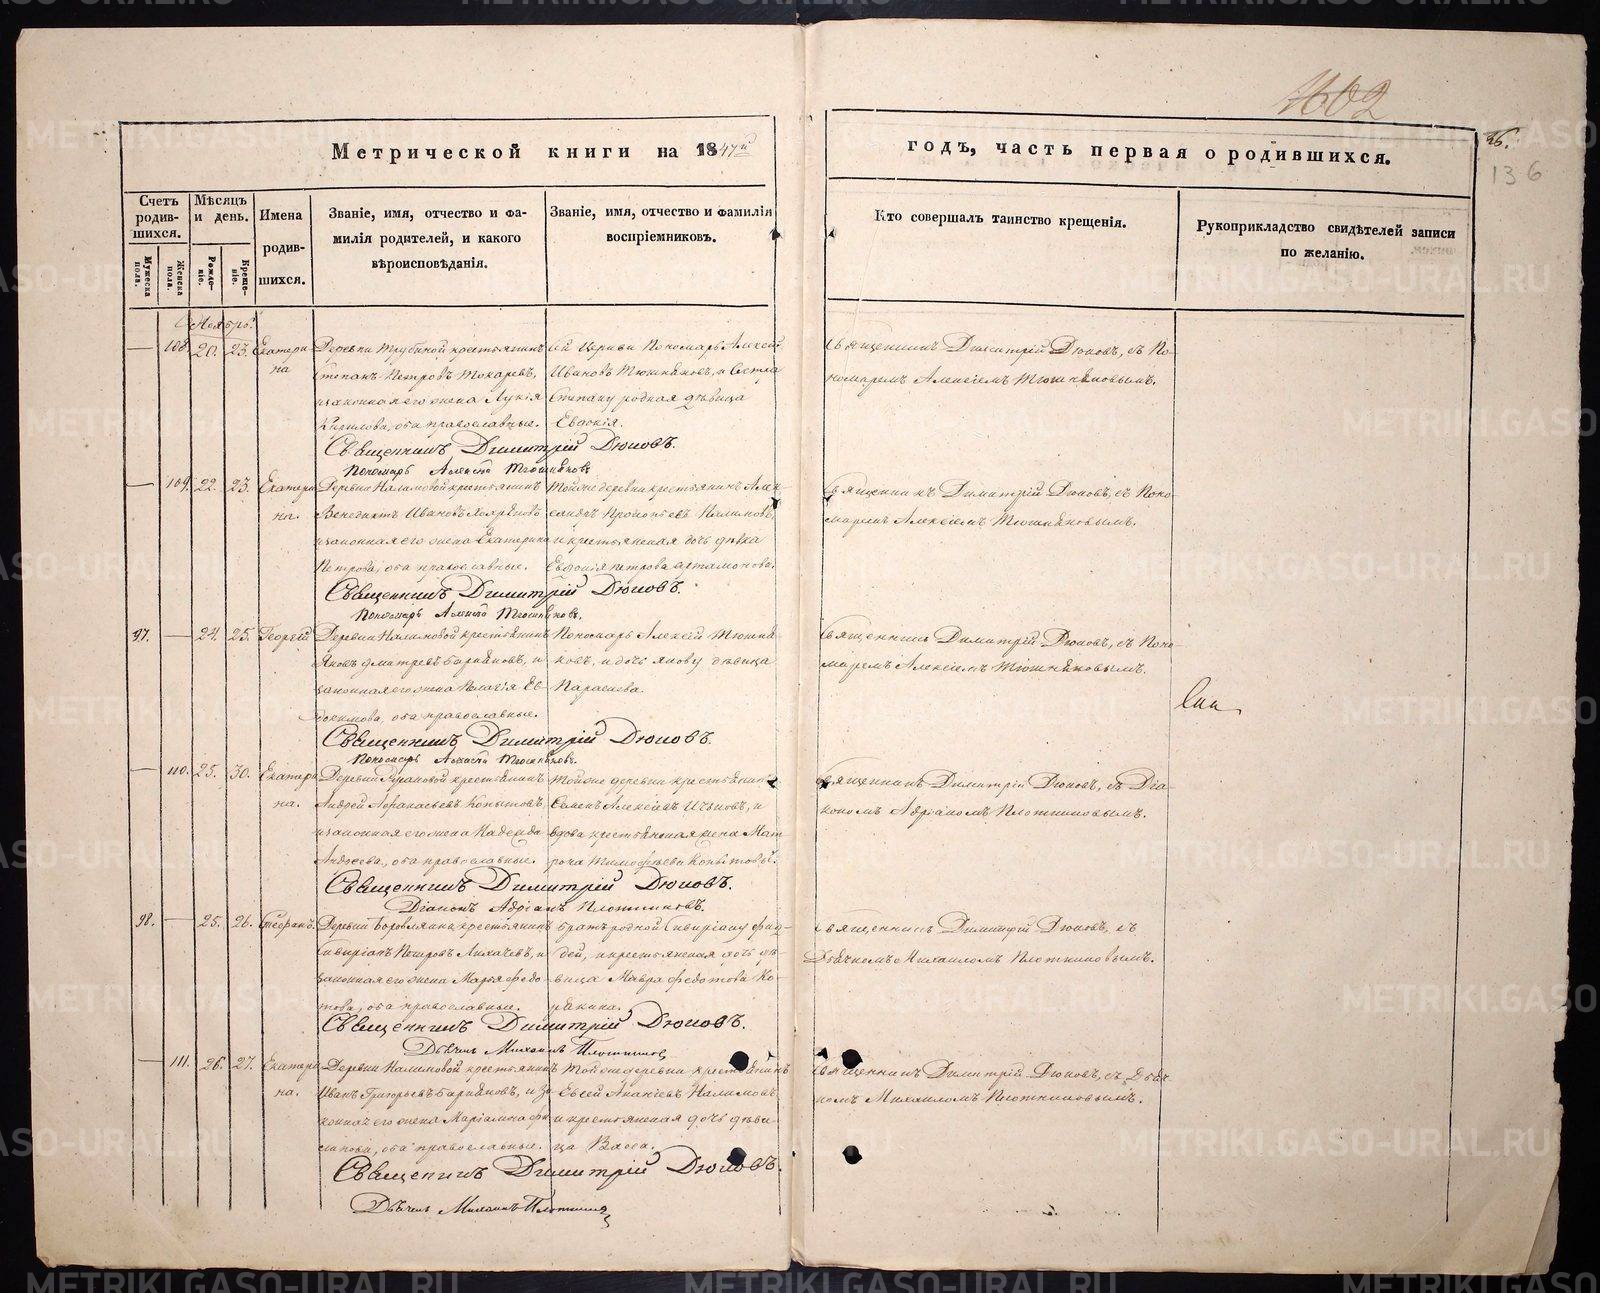 1602
Метрической книги на 1847й
годъ, часть первая о родившихся.
136
Счетъ родив-шихся.
Мужеска пола.
Женска пола.
Мѣсяцъ и день.
Рожде-ніе.
Креще-ніе.
Имена родив-шихся.
Званіе, имя, отчество и фа-
милія родителей, и какого
вѣроисповѣданія.
Званіе, имя, отчество и фамилія
воспріемниковъ.
Кто совершалъ таинство крещенія.
Рукоприкладство свидѣтелей записи
по желанію.
Ноябрь.
108. 20. 23. Екатери-
на
Деревни Трубиной крестьянинъ
Степанъ Петровъ Токаревъ,
и законная его жена Лукія
Кирилова, оба православные.
сей церкви Пономарь Алексѣй
Ивановъ Тюшняковъ, и Сестра
Степану родная дѣвица
Евдокія.
Священникъ Димитрій Дюковъ, съ По-
номаремъ Алексіемъ Тюшняковымъ.
Священникъ Димитрій Дюковъ.
Пономарь Алексѣй Тюшняковъ
109. 22. 23. Екатери-
на.
Деревни Налимовой крестьянинъ
Венедиктъ Ивановъ
и законная его жена Екатерина
Петрова, оба православные.
Тойже деревни крестьянинъ Алек-
сандръ Прокопьевъ Налимовъ,
и крестьянская дочь дѣвка
Евдокія Петрова Артамонова.
Священникъ Димитрій Дюковъ, съ Поно-
маремъ Алексіемъ Тюшняковымъ.
Священникъ Димитрій Дюковъ.
Пономарь Алексѣй Тюшняковъ.
97. 24. 25. Георгій
Деревни Налимовой крестьянинъ
Яковъ Дмитревъ Барняковъ, и
законная его жена Пелагія Ев-
докимова, оба православные.
Пономарь Алексѣй Тюшня-
ковъ, и дочь Якову дѣвица
Параскева.
Священникъ Димитрій Дюковъ, съ Поно-
маремъ Алексіемъ Тюшняковымъ.
Священникъ Димитрій Дюковъ.
Пономарь Алексѣй Тюшняковъ.
110. 25. 30. Екатери-
на.
крестьянинъ
Андрей Афанасьевъ Копытовъ,
и законная его жена Надежда
Андреева, оба православные.
Тойже деревни крестьянинъ
Семенъ Алексіевъ и
вдова крестьянская жена Мат-
рона Тимофѣева Копытова.
Священникъ Димитрій Дюковъ, съ Діа-
кономъ Адріаномъ Плотниковымъ.
Священникъ Димитрій Дюковъ.
Діаконъ Адріанъ Плотниковъ.
98. 25. 26. Стефанъ.
Деревни Боровлянки крестьянинъ
Сивиріанъ Петровъ Лихачевъ, и
законная его жена Марья Федо-
това, оба православные.
братъ родной Сивиріану Фад-
дей, и крестьянская дочь дѣ-
вица Мавра Федотова
Священникъ Димитрій Дюковъ, съ
Дьячкомъ Михаиломъ Плотниковымъ.
Священникъ Димитрій Дюковъ.
Дьячекъ Михаилъ Плотниковъ
111. 26. 27. Екатери-
на.
Деревни Налимовой крестьянинъ
Иванъ Григорьевъ Барняковъ, и за-
конная его жена Маріамна
оба православные.
Тойже деревни крестьянинъ
Евсей Ананіевъ Налимовъ
и крестьянская дочь дѣви-
ца Васса.
Священникъ Димитрій Дюковъ, съ Дьяч-
комъ Михаиломъ Плотниковымъ.
Священникъ Димитрій Дюковъ.
Дьячекъ Михаилъ Плотниковъ
METRIKI.GASO-URAL.RU